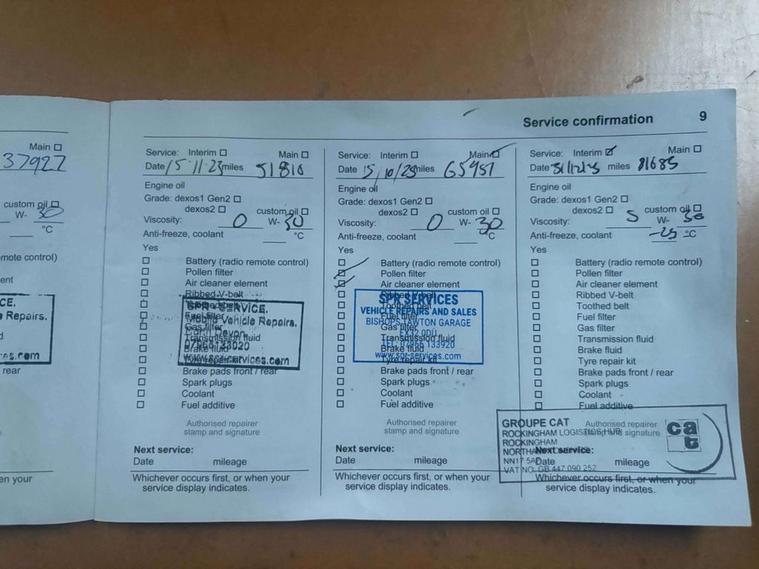 Service confirmation 9
Main ☐
37927
custom oil ☐
W- 30
°C
mote control)
ent
CE.
e Repairs.
es.com
rear
en your
Service: Interim ☐ Main ☐
Date 15.11.23 miles 51816
Engine oil
Grade: dexos1 Gen2 ☐
dexos2 ☐ custom oil ☐
Viscosity: 0 W- 30
Anti-freeze, coolant °C
Yes
☐ Battery (radio remote control)
☐ Pollen filter
☐ Air cleaner element
☐ Ribbed V-belt
☐
☐ Fuel filter
☐ Gas filter
☐ Transmission fluid
☐ Brake fluid
☐ Tyre repair kit
☐ Brake pads front / rear
☐ Spark plugs
☐ Coolant
☐ Fuel additive
SPR - SERVICE.
Mobile Vehicle Repairs.
Devon
07966 133920
www.spr-services.com
Authorised repairer
stamp and signature
Next service:
Date mileage
Whichever occurs first, or when your
service display indicates.
Service: Interim ☐ Main ☑
Date 15/10/25 miles 65951
Engine oil
Grade: dexos1 Gen2 ☐
dexos2 ☐ custom oil ☐
Viscosity: 0 W- 30
Anti-freeze, coolant °C
Yes
☐ Battery (radio remote control)
☑ Pollen filter
☑ Air cleaner element
☐ Ribbed V-belt
☐ Toothed belt
☐ Fuel filter
☐ Gas filter
☐ Transmission fluid
☐ Brake fluid
☐ Tyre repair kit
☐ Brake pads front / rear
☐ Spark plugs
☐ Coolant
☐ Fuel additive
SPR SERVICES
VEHICLE REPAIRS AND SALES
BISHOPS TAWTON GARAGE
EX32 0DU
TEL: 07966 133920
www.spr-services.com
Authorised repairer
stamp and signature
Next service:
Date mileage
Whichever occurs first, or when your
service display indicates.
Service: Interim ☑ Main ☐
Date miles 81685
Engine oil
Grade: dexos1 Gen2 ☐
dexos2 ☐ custom oil ☐
Viscosity: 5 W- 30
Anti-freeze, coolant -25 °C
Yes
☐ Battery (radio remote control)
☐ Pollen filter
☐ Air cleaner element
☐ Ribbed V-belt
☐ Toothed belt
☐ Fuel filter
☐ Gas filter
☐ Transmission fluid
☐ Brake fluid
☐ Tyre repair kit
☐ Brake pads front / rear
☐ Spark plugs
☐ Coolant
☐ Fuel additive
Authorised repairer
stamp and signature
GROUPE CAT
ROCKINGHAM LOGISTICS HUB
ROCKINGHAM
NN17
VAT NO. GB 447 090 252
cat
Next service:
Date mileage
Whichever occurs first, or when your
service display indicates.